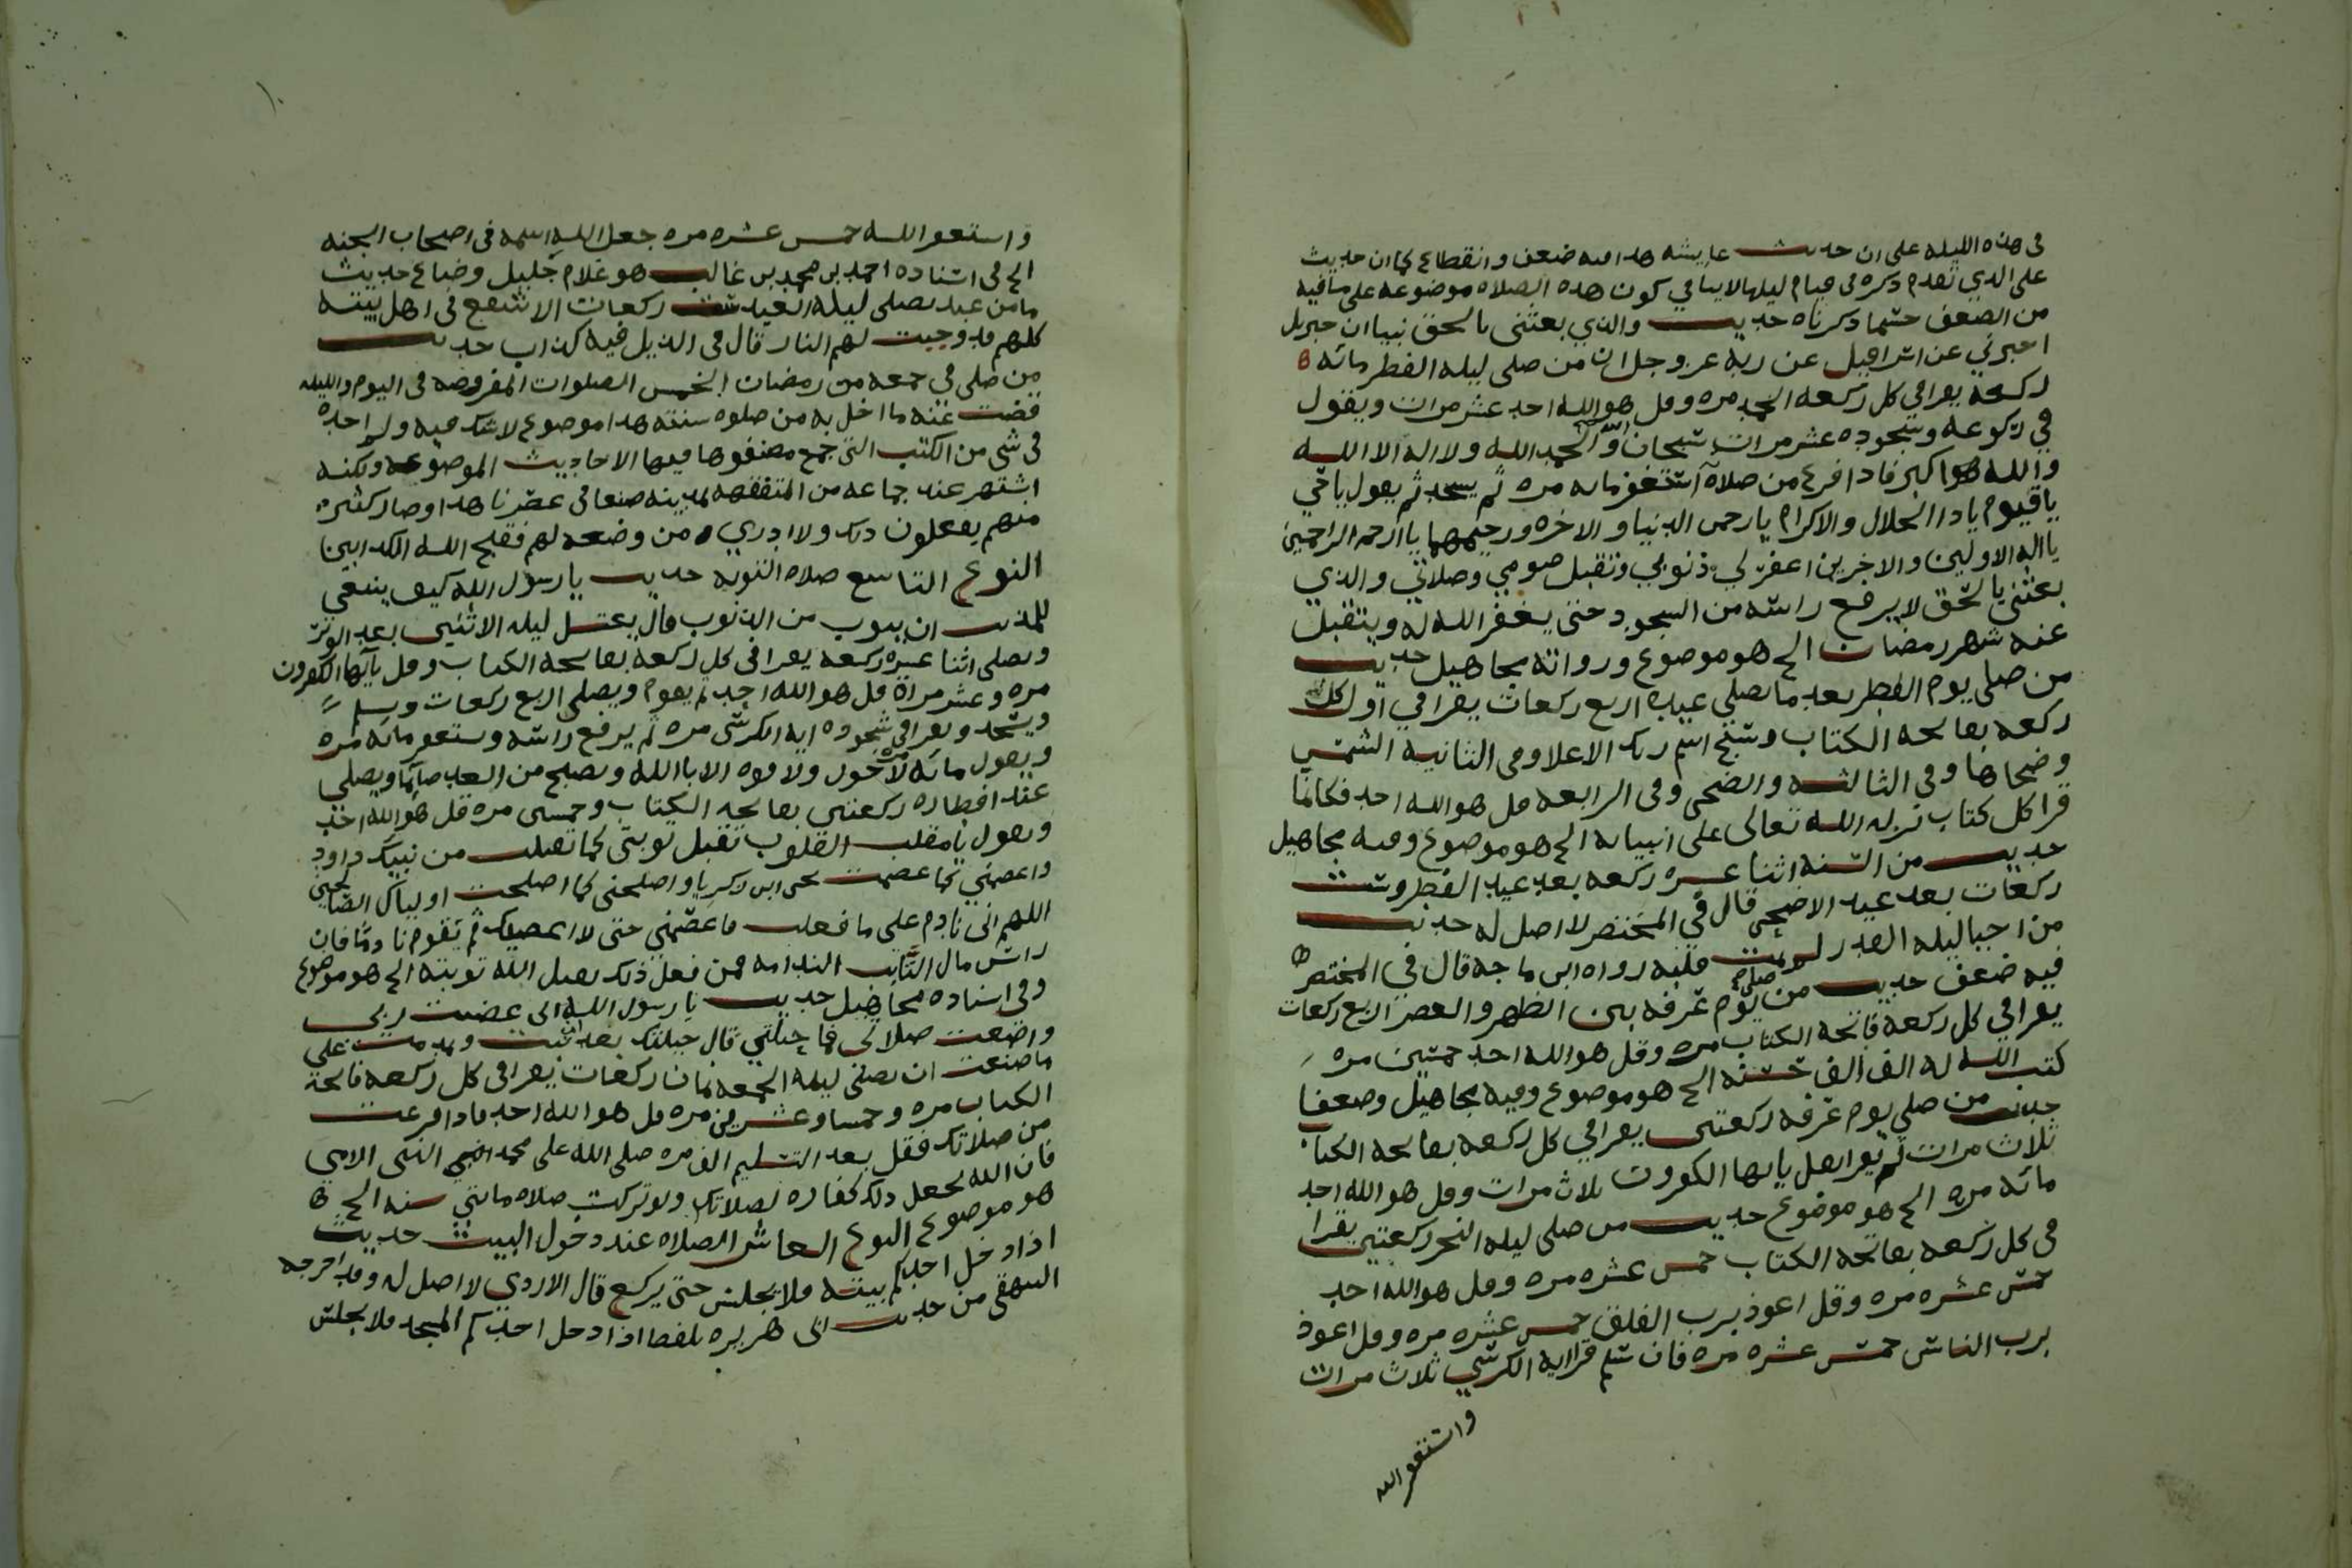 في هذه الليله على ان حديث عايشه هدا فيه ضعف وانقطاع كما ان حديث
على الدي تقدم دكره في قيام ليلها لاينافي كون هده الصلاه موضوعه على ما فيه
من الضعف حسبما دكرناه حديث والذي بعثني بالحق نبيا ان جبريل
اخبرني عن اسرافيل عن ربه عز وجل ان من صلى ليله الفطر مائه
ركعه يقرا في كل ركعه الحمد مره وقل هو الله احد عشر مرات ويقول
في ركوعه وسجوده عشر مرات سبحان الله والحمد لله ولا اله الا الله
والله اكبر فادا فرغ من صلاته استغفر مايه مره ثم يسجد ثم يقول ياحي
ياقيوم يادا الجلال والاكرام يا رحمن الدنيا والاخره ورحيمهما يا ارحم الراحمين
يااله الاولين والاخرين اغفر لي ذنوبي وتقبل صومي وصلاتي والذي
بعثني بالحق لا يرفع راسه من السجود حتى يغفر الله له ويتقبل
عنه شهر رمضان الخ هو موضوع ورواته مجاهيل حديث
من صلى يوم الفطر بعد ما يصلي عيده اربع ركعات يقرا في اول كل
ركعه بفاتحه الكتاب وسبح اسم ربك الاعلا وفي الثانيه الشمس
وضحاها وفي الثالثه والضحى وفي الرابعه قل هو الله احد فكانما
قرا كل كتاب نزله الله تعالى على انبيايه الخ هو موضوع وفيه مجاهيل
حديث من السنه اثنا عشره ركعه بعد عيد الفطر وست
ركعات بعد عيد الاضحى قال في المختصر لا اصل له حديث
من احيا ليله القدر لم يمت قلبه رواه ابن ماجه قال في المختصر
فيه ضعف حديث من صلى يوم عرفه بين الظهر والعصر اربع ركعات
يقرا في كل ركعه فاتحه الكتاب مره وقل هو الله احد خمسين مره
كتب الله له الف الف حسنه الخ هو موضوع وفيه مجاهيل وضعفا
حديث من صلى يوم عرفه ركعتين يقرا في كل ركعه بفاتحه الكتاب
ثلاث مرات ثم يقرا بقل يا ايها الكفرون ثلاث مرات وقل هو الله احد
مائه مره الخ هو موضوع حديث من صلى ليله النحر ركعتين يقرا
في كل ركعه بفاتحه الكتاب خمس عشره مره وقل هو الله احد
خمس عشره مره وقل اعوذ برب الفلق خمس عشره مره وقل اعوذ
برب الناس خمس عشره مره فان سلم قرا ايه الكرسي ثلاث مرات
واستغفر الله
واستغفر الله خمس عشره مره جعل الله اسمه في اصحاب الجنه
الخ في اسناده احمد بن محمد بن غالب هو غلام خليل وضاع حديث
ما من عبد يصلي ليله العيد ست ركعات الا شفع في اهل بيته
كلهم قد وجبت لهم النار قال في الذيل فيه كذاب حديث
من صلى في جمعه من رمضان الخمس الصلوات المفروضه في اليوم والليله
قضت عنه ما اخل به من صلوه سنته هدا موضوع لا شك فيه ولم اجده
في شي من الكتب التي جمع مصنفوها فيها الاحاديث الموضوعه ولكنه
اشتهر عند جماعه من المتفقهه بمدينه صنعا في عصرنا هدا وصار كثير
منهم يفعلون دلك ولا ادري من وضعه لهم فقبح الله الكدابين
النوع التاسع صلاه التوبه حديث يا رسول الله كيف ينبغي
للمذنب ان يتوب من الذنوب قال يغتسل ليله الاثنين بعد الوتر
ويصلي اثنا عشره ركعه يقرا في كل ركعه بفاتحه الكتاب وقل يآيها الكفرون
مره وعشر مراة قل هو الله احد ثم يقوم ويصلي اربع ركعات ويسلم
ويسجد ويقرا في سجوده ايه الكرسي مره ثم يرفع راسه ويستغفر مائه مره
ويقول مائه مره لا حول ولا قوه الا بالله ويصبح من الغد صايما ويصلي
عند افطاره ركعتين بفاتحه الكتاب وخمسين مره قل هو الله احد
ويقول يا مقلب القلوب تقبل توبتي كما تقبلت من نبيك داود
واعصمني كما عصمت يحيى ابن زكريا واصلحني كما اصلحت اولياك الصالحين
اللهم اني نادم على ما فعلت فاعصمني حتى لا اعصيك ثم يقوم نادما فان
راس مال التايب الندامه فمن فعل ذلك يقبل الله توبته الخ هو موضوع
وفي اسناده مجاهيل حديث يا رسول الله اني عصيت ربي
واضعت صلاتي فما حيلتي قال حيلتك بعد ان تبت وندمت على
ما صنعت ان تصلي ليله الجمعه ثمان ركعات يقرا في كل ركعه فاتحة
الكتاب مره وخمسا وعشرين مره قل هو الله احد فادا فرغت
من صلاتك فقل بعد التسليم الف مره صلى الله على محمد النبي الامي
فان الله يجعل دلك كفاره لصلاتك ولو تركت صلاه مائتي سنه الخ
هو موضوع النوع العاشر الصلاه عند دخول البيت حديث
اذا دخل احدكم بيته فلا يجلس حتى يركع قال الازدي لا اصل له وقد اخرجه
البيهقي من حديث ابي هريره بلفظ اذا دخل احدكم المسجد فلا يجلس